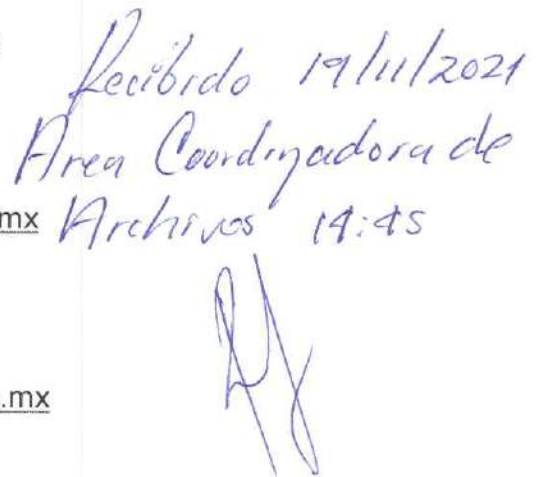 Recibido 19/11/2021
Area Coordinadora de
mx Archivos 14:45
.mx